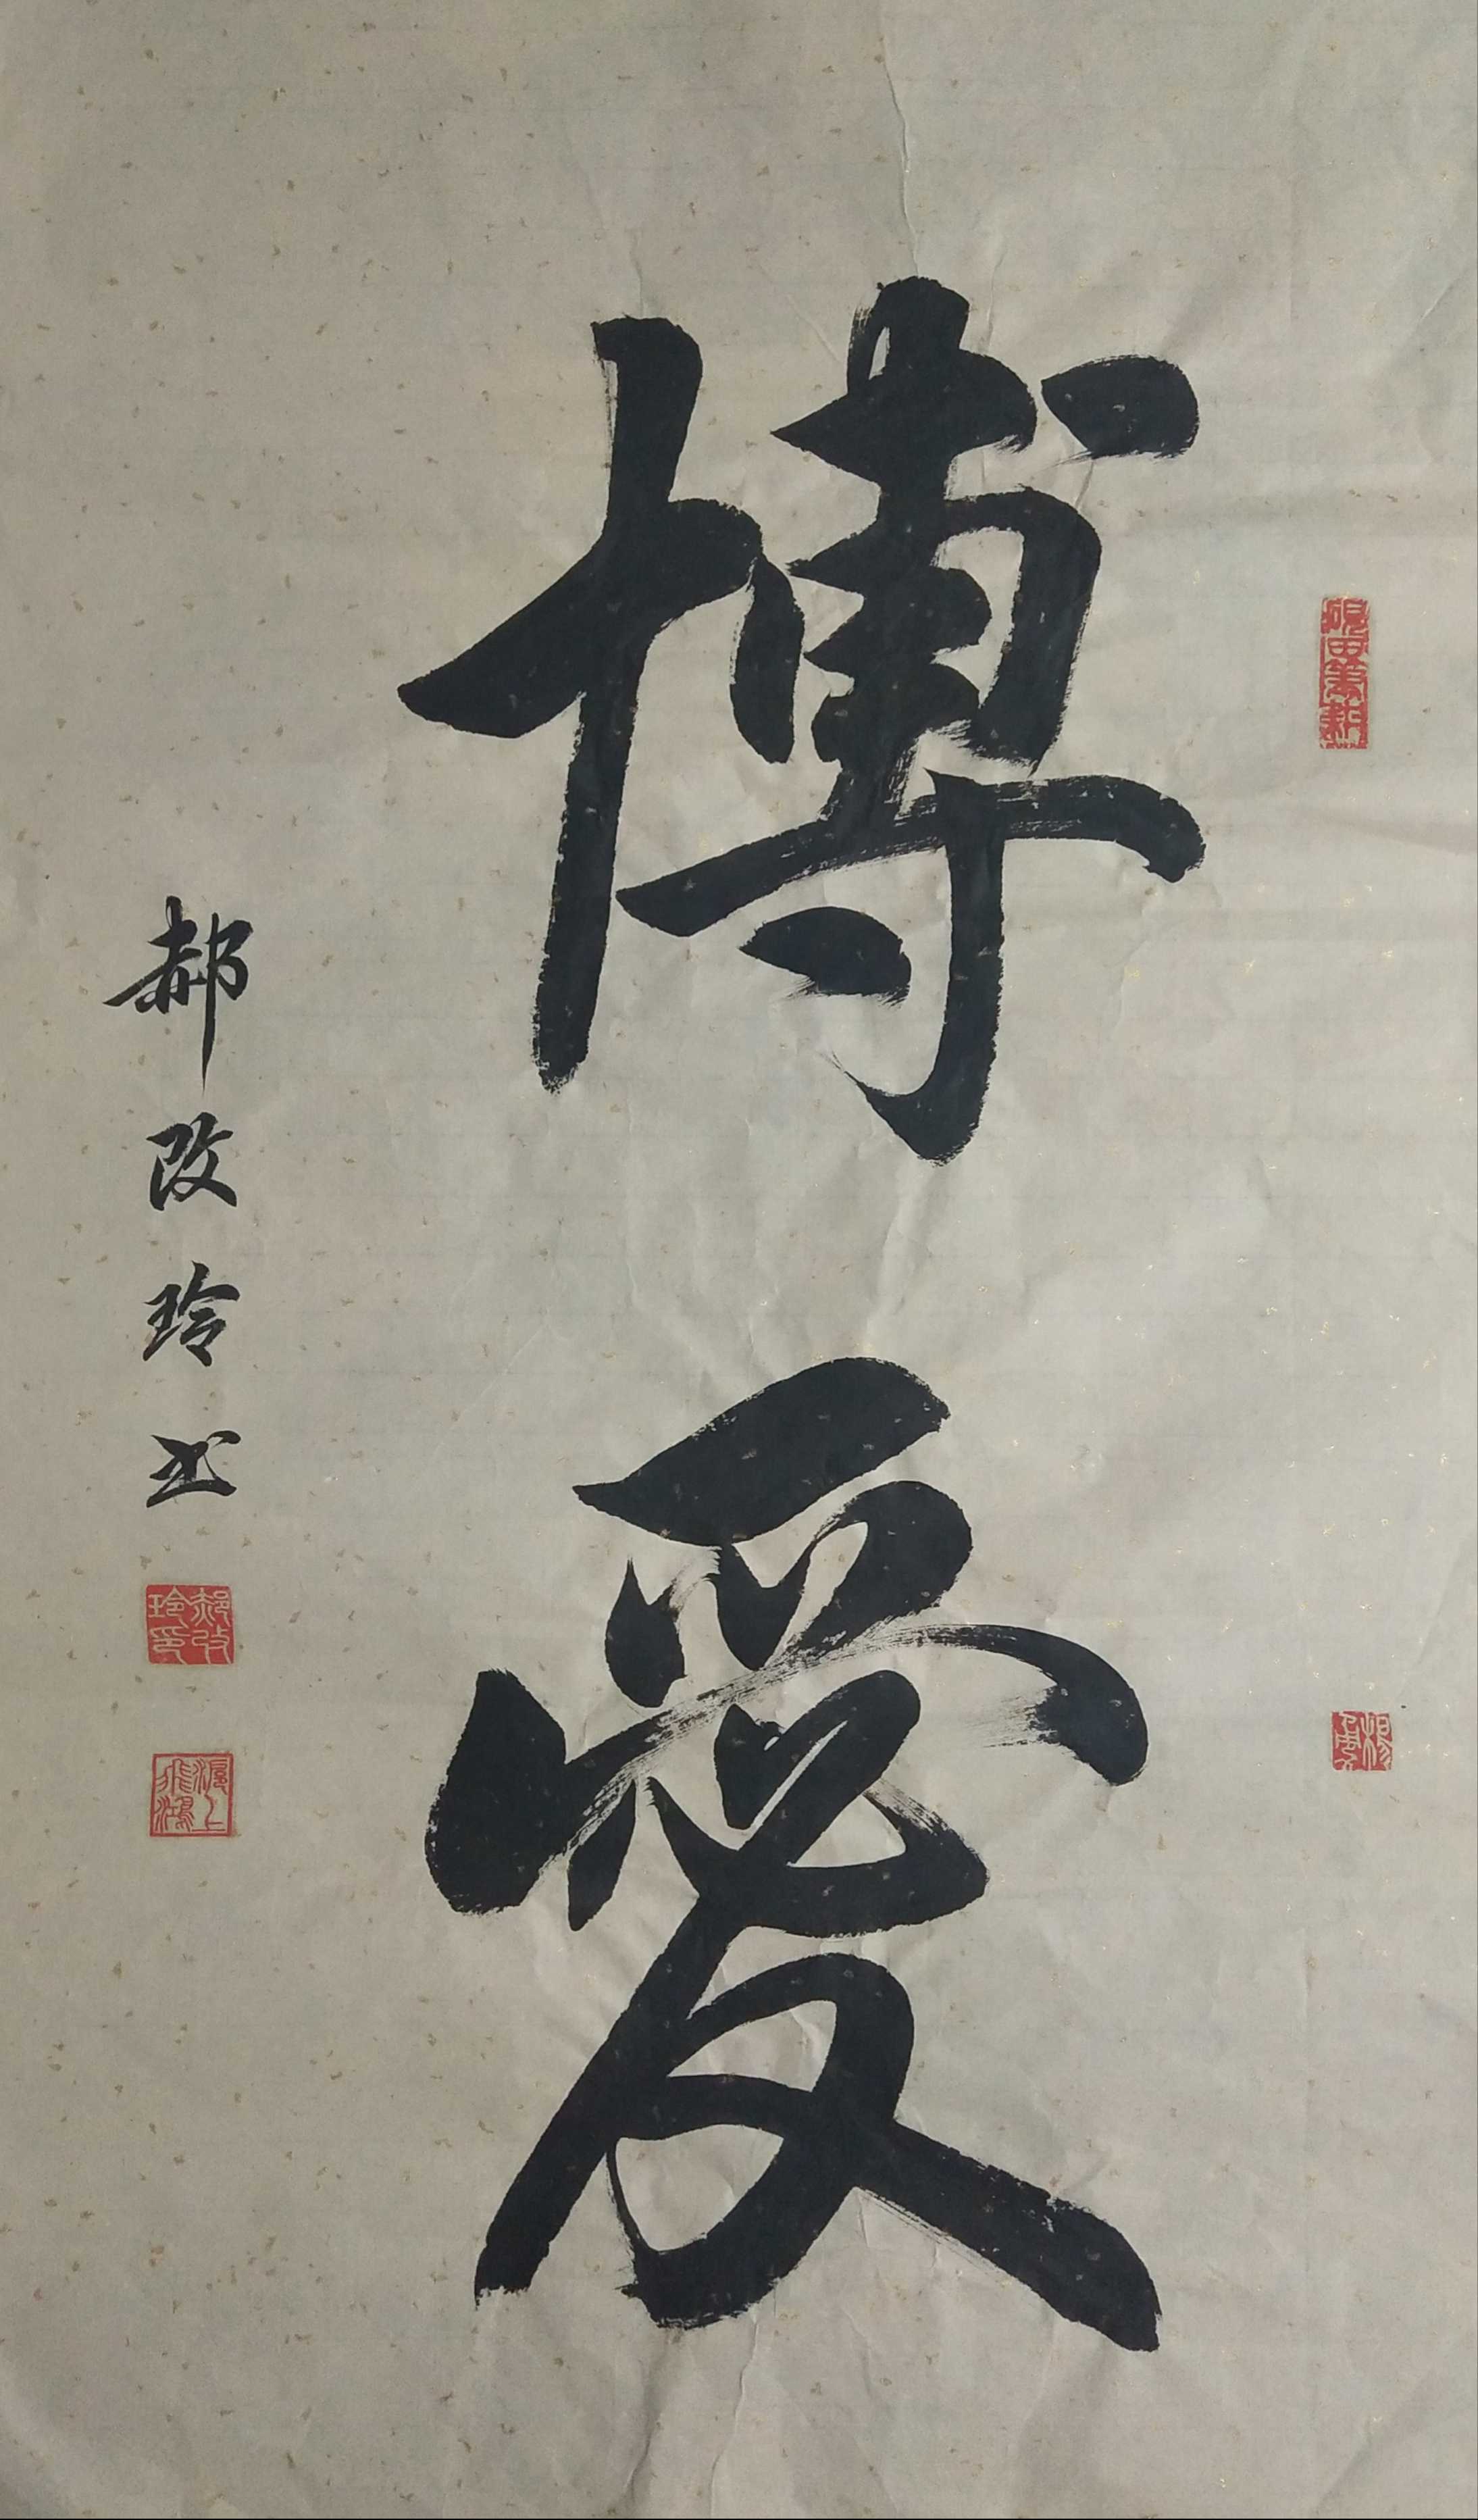 博愛
郝改玲书
郝改玲印